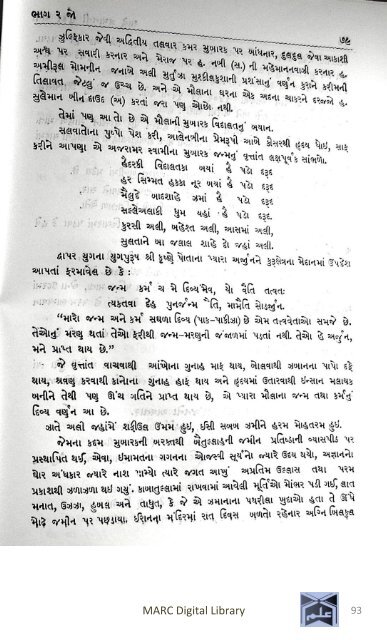 ભાગ ૨ જો
૭૯
ઝુલ્ફિકાર જેવી અદ્વિતીય તલવાર કમર મુબારક પર બાંધનાર, દુલદુલ જેવા આકાશી
અશ્વ પર સવારી કરનાર અને મેરાજ પર હ. નબી (સ.) ની મહેમાનનવાઝી કરનાર હ.
અમીરૂલ મોમનીન જનાબે અલી મુર્તુઝા મુશ્કીલકુશાની પ્રશંસાનું વર્ણન કુરાને કરીમની
તિલાવત જેટલું જ ઉચ્ચ છે. અને એ મૌલાના ઘરના એક અદના ચાકરને દરજ્જો હ.
સુલેમાન બીન દાઉદ (અ) કરતાં જરા પણ ઓછો નથી.
તેમાં પણ આ તો છે એ મૌલાની મુબારક વિલાદતનું બયાન.
સલવાતોના પુષ્પો પેશ કરી, આલેનબીના પ્રેમરૂપી આબે કૌસરથી હૃદય ધોઈ, સાફ
કરીને આપણા એ અજરામર સ્વામીના મુબારક જન્મનું વૃત્તાંત લક્ષપૂર્વક સાંભળો.
હૈદરકી વિલાદતકા બયાં હૈ પઢો દરૂદ
હર સિમ્મત હક્કા નૂર બયાં હૈ પઢો દરૂદ
મૈલુદે બાદશાહે ઝમાં હૈ પઢો દરૂદ
સલ્લેઅલાકી ધુમ યહાં હૈ પઢો દરૂદ.
કુરસી અલી, બહેશ્ત અલી, આસમાં અલી,
સુલતાને બા જલાલ શાહે દો જહાં અલી.
દ્વાપર યુગના યુગપુરૂષ શ્રી કૃષ્ણે પોતાના પ્યારા અર્જુનને કુરૂક્ષેત્રના મેદાનમાં ઉપદેશ
આપતાં ફરમાવેલ છે કે :
જન્મ કર્મ ચ મે દિવ્યમેવ, યો વૈતિ તત્વતઃ
ત્યકતવા દેહ પુનર્જન્મ નૈતિ, મામેતિ સોડર્જુન.
“મારો જન્મ અને કર્મ સઘળા દિવ્ય (પાક-પાકીઝા) છે એમ તત્વવેત્તાઓ સમજે છે.
તેઓનું મરણ થતાં તેઓ ફરીથી જન્મ-મરણની જંજાળમાં પડતાં નથી. તેઓ હે અર્જુન,
મને પ્રાપ્ત થાય છે.”
જે વૃત્તાંત વાચવાથી આંખોના ગુનાહ માફ થાય, બોલવાથી ઝબાનના પાપો દફે
થાય, શ્રવણ કરવાથી કાનોના ગુનાહ હાફ થાય અને હૃદયમાં ઉતારવાથી ઇન્સાન મલાયક
બનીને તેથી પણ ઊંચ ગતિને પ્રાપ્ત થાય છે, એ પ્યારા મૌલાના જન્મ તથા કર્મનું
દિવ્ય વર્ણન આ છે.
ઝાતે અલી જહાંમેં શફીઉલ ઉમમ હુઇ, ઈસી સબબ ઝમીને હરમ મોહતરમ હુઈ.
જેમના કદમ મુબારકની બરકતથી બૈતુલ્લાહની જમીન પ્રતિષ્ઠાની વ્યાસપીઠ પર
પ્રસ્થાપિત થઈ, એવા, ઇમામતના ગગનના ઓજસ્વી સૂર્યનો જ્યારે ઉદય થયો, અજ્ઞાનનો
ઘોર અંધકાર જ્યારે નાશ પામ્યો ત્યારે જગત આખું અપ્રતિમ ઉલ્લાસ તથા પરમ
પ્રકાશથી ઝળાઝળા થઇ ગયું. કાબાતુલ્લામાં રાખવામાં આવેલી મૂર્તિઓ ભોંભર પડી ગઈ, લાત
મનાત, ઉઝઝા, હુબલ અને તાઘુત, કે જે એ ઝમાનાના પથરીલા ખુદાઓ હતા તે ઊંધે
મોઢે જમીન પર પછડાયા. ઈરાનના મંદિરમાં રાત દિવસ બળતો રહેનાર અગ્નિ બિલકુલ
MARC Digital Library
93